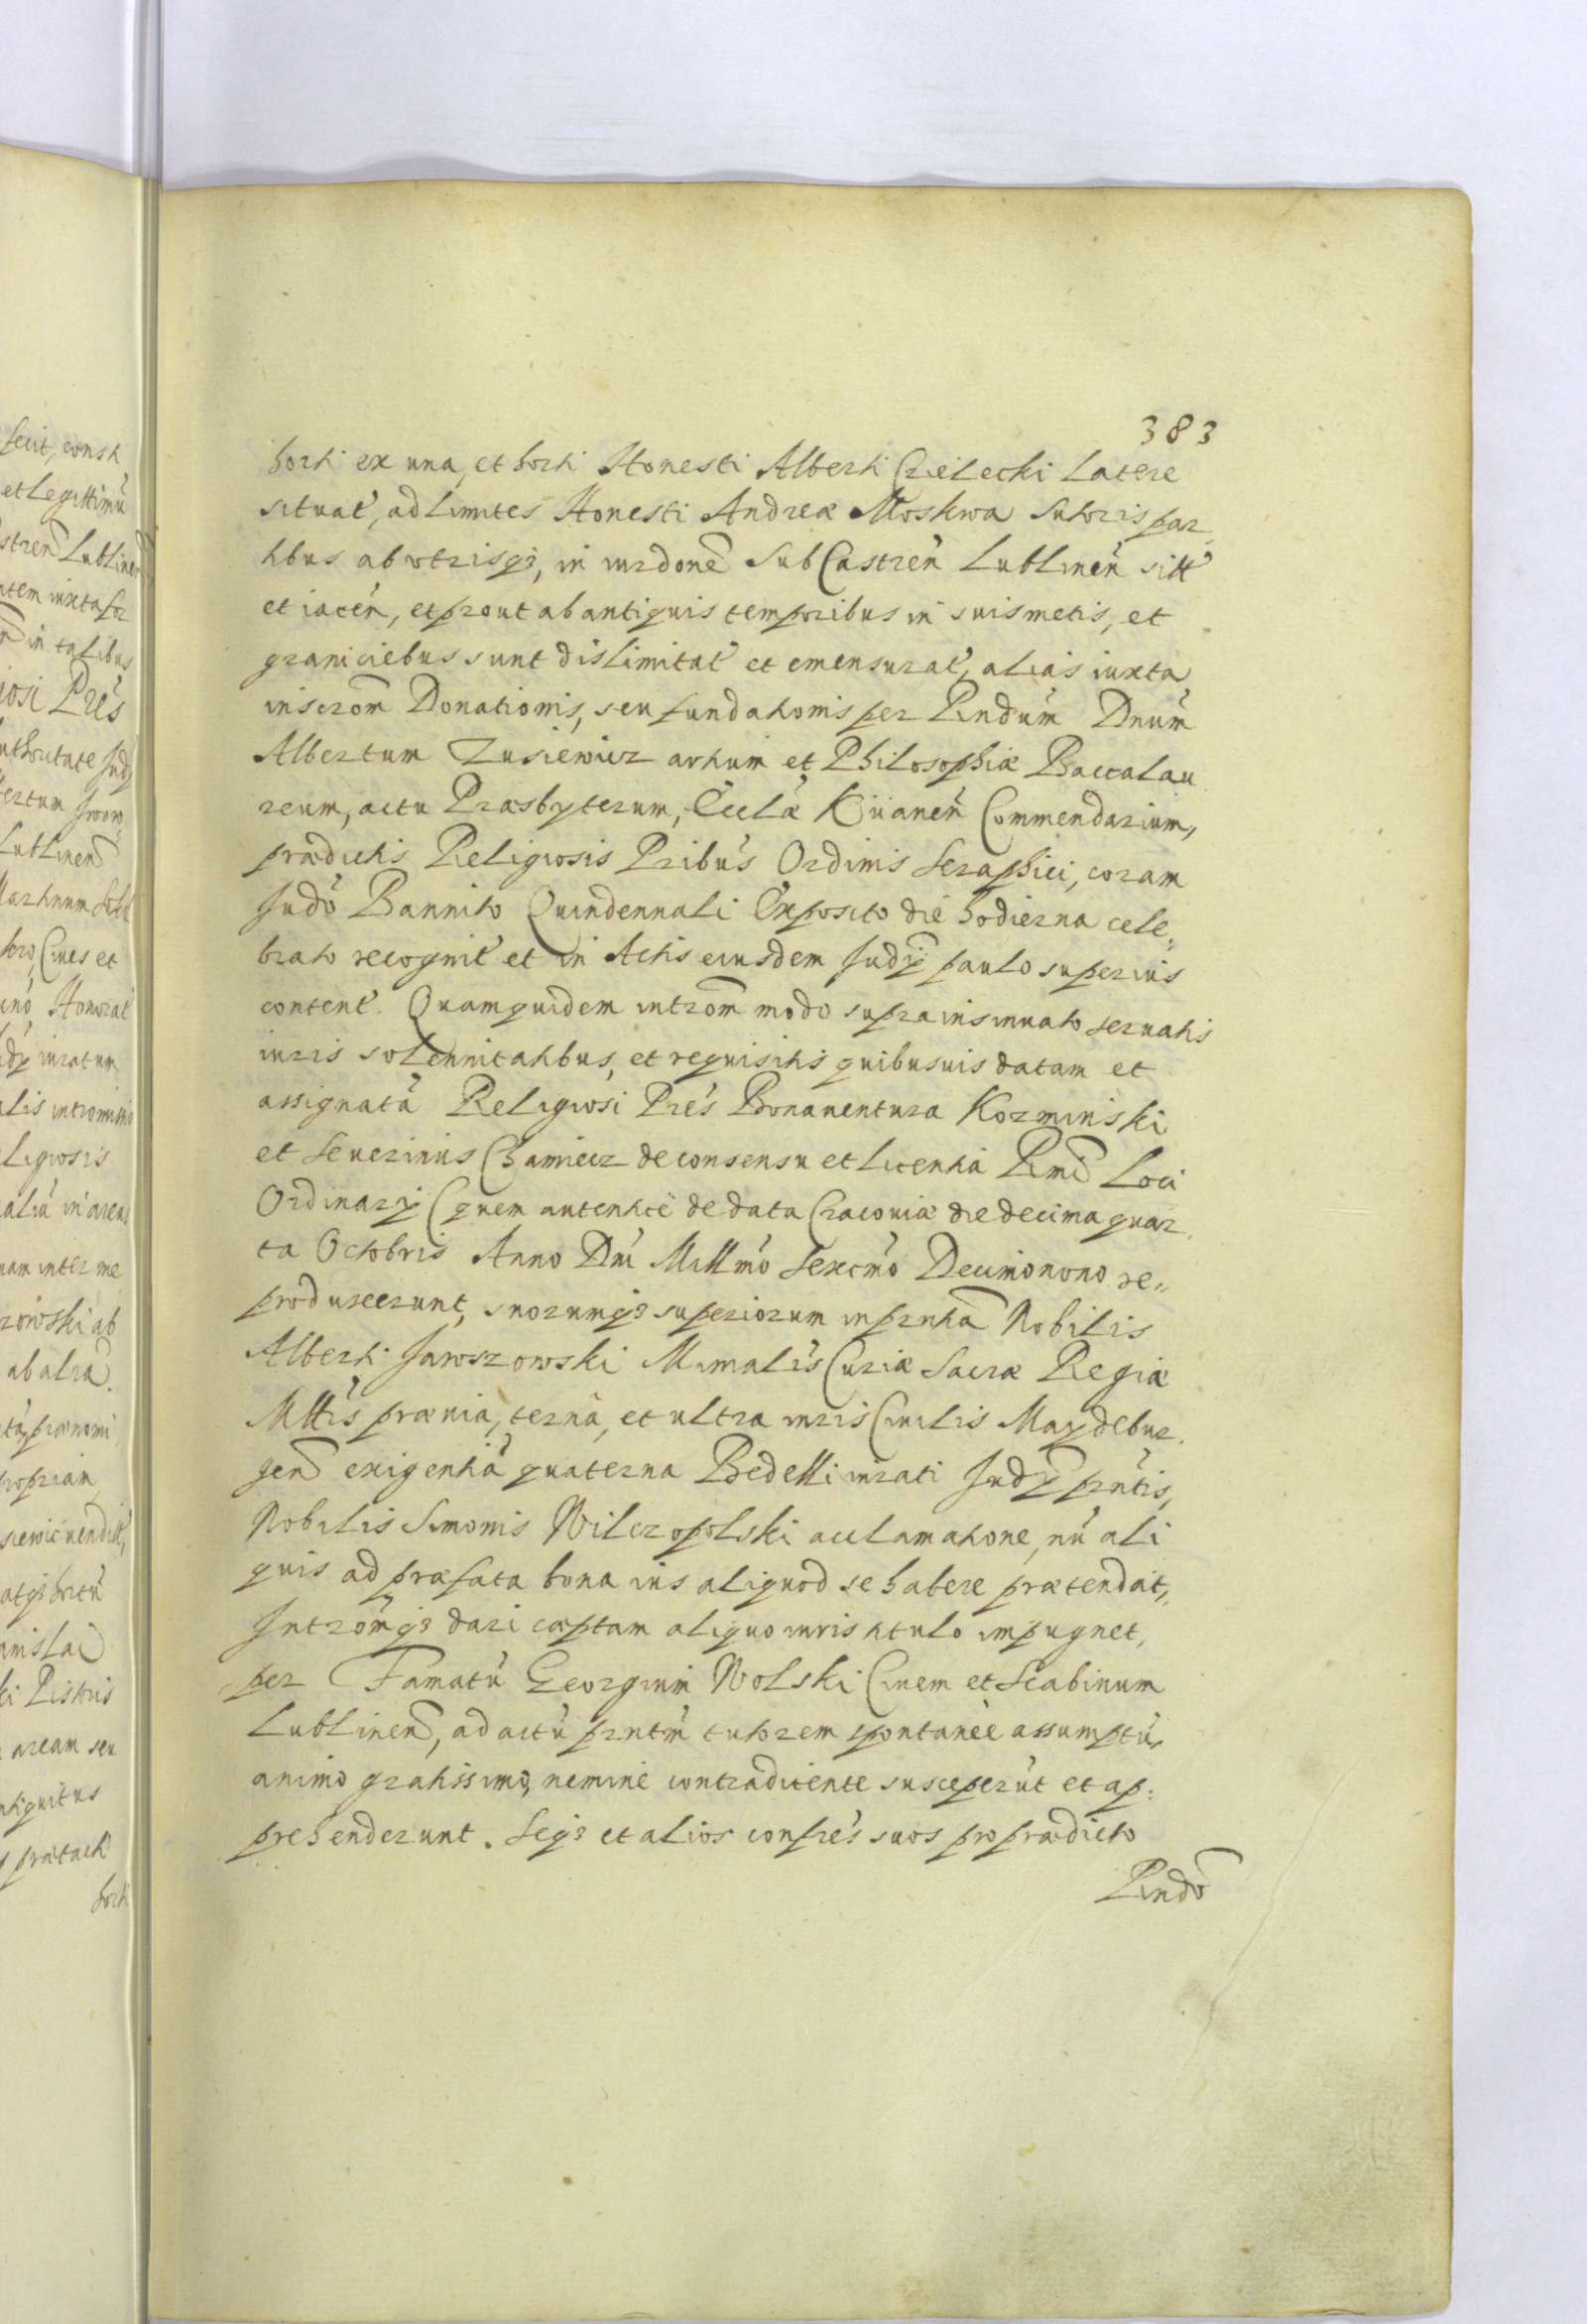 383
horti ex una, et horti Honesti Alberti Czielecki Latere
situat, ad limites Honesti Andreæ Moskwa Sutoris par
tibus ab utrisq3, in iurdone Sub Castren Lublinen sitt
et iacen, et prout ab antiquis temporibus in suis metis, et
graniciebus sunt dislimitat et emensurat, alias iuxta
inscrom Donationis, seu fundationis per Rndum Dnum
Albertum Zusiewicz artium et Philosophiæ Baccalau
reum, actu Præsbyterum, Eccla Kiianen Commendarium,
prædictis Religiosis Pribus Ordinis Seraphici, coram
Judo Bannito Quindennali Exposito die hodierna cele,
brato recognit et in Actis eiusdem Judij paulo superius
content. Quamquidem introm modo suprainsinuato servatis
iuris solennitatibus, et requisitis quibusuis datam et
assignatā Religiosi Pres Bonauentura Kozminski
et Seuerinus Chamiecz de consensu et licentia Rmi Loci
Ordinarij (quem autentice de data Cracouiæ die decima quar
ta Octobris Anno Dni Millmo Sexcmo Decimonono re,,
produxerunt, suorumq3 superiorum in prntia Nobilis
Alberti Jaroszowski Mimalis Curiæ Sacræ Regiæ
Mttis præuia, terna, et ultra iuris Ciuilis Maydebur.
gen exigentiā quaterna Bedelli iurati Judij prntis,
Nobilis Simonis Wilczopolski acclamatione, nū ali
quis ad præfata bona ius aliquod se habere prætendat,
Intromq3 dari cæptam aliquo iuris titulo impugnet,
per Famatū Georgium Wolski Ciuem et Scabinum
Lublinen, ad actū prntm tutorem spontanèe assumptū,
animo gratissimo, nemine contradicente susceperūt et ap:
prehenderunt. Seq3 et alios confres suos pro prædicto
Rndo